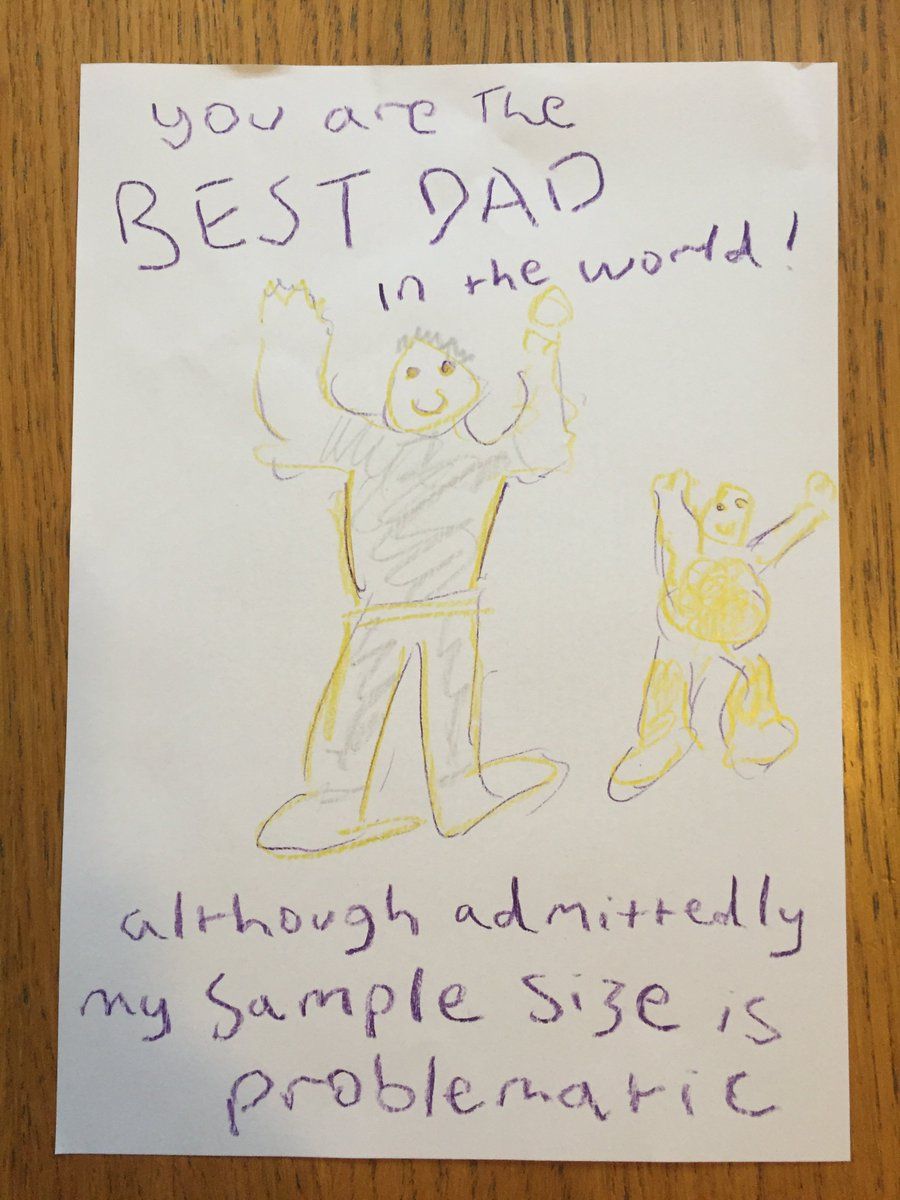 you are The
BEST DAD
in the world!
although admittedly
my Sample Size is
problematic